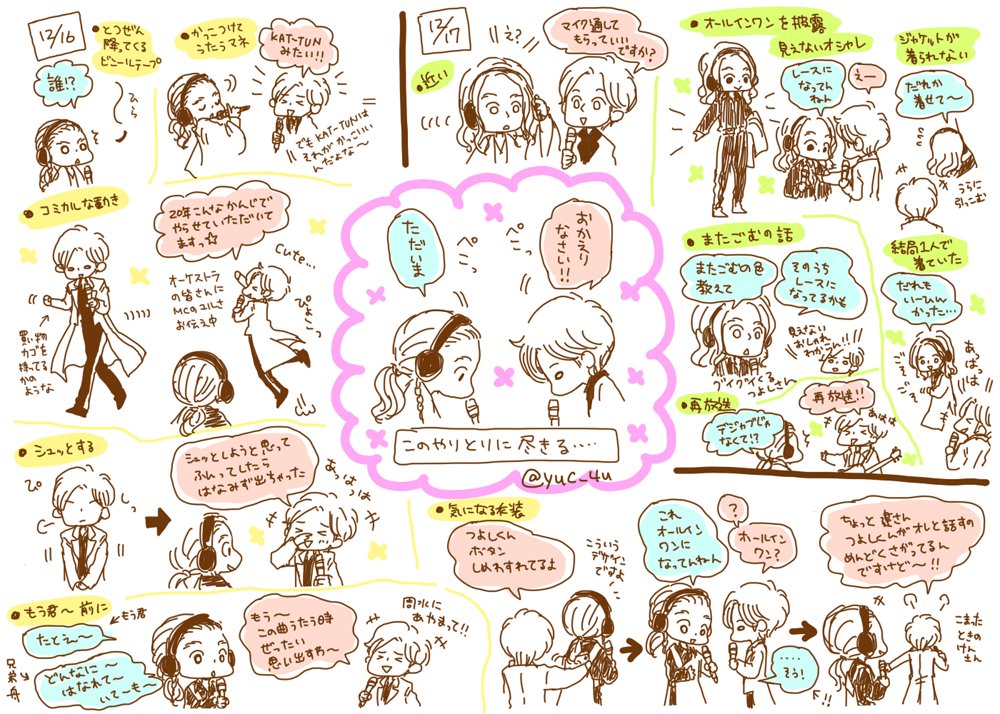 12/16
●とうぜん
降ってくる
ビニールテープ
誰!?
ひら
●かっこつけて
うたうマネ
KAT-TUN
みたい!!
でもKAT-TUNは
それがかっこいい
んだよな〜
●コミカルな動き
買い物
カゴを
持ってる
かの
ような
20年こんなかんじで
やらせていただいて
ますっ☆
オーケストラ
の皆さんに
MCのユルさ
お伝え中
cute...
ぴょーっ
●シュッとする
ぴっ
シュッとしようと思って
ふんってしたら
はなみず出ちゃった
あはは
●もう君〜前に
←もう君
たとえ〜〜
どんなに〜
はなれて〜
いて〜も〜
兄弟舟
もう〜
この曲うたう時
ぜったい
思い出すわ〜
周水に
あやまって!!
12/17
●近い
え?
マイク通して
もらっていい
ですか?
おかえり
なさい!!
ただいま
ぺこっ
ぺこ
このやりとりに尽きる....
@yuc_4u
●オールインワンを披露
見えないオシャレ
レースに
なってん
ねん
えー
ジャケットが
着られない
だれか
着せて〜
うらに
引っこむ
●またごむの話
またごむの色
教えて
そのうち
レースに
なってるかも
見えない
おしゃれ
わかんない!!
グイグイくる
つよしさん〜
結局1人で
着ていた
だれも
いーひん
かった...
ごそごそ
あはっは
●再放送
デジャブじゃ
なくて!?
再放送!!
あはは
●気になる衣装
つよしくん
ボタン
しめわすれてるよ
こういう
デザイン
ですよ
これ
オールイン
ワンに
なってんねん
?
オールイン
ワン?
....
そう!
ちょっと建さん
つよしくんがオレと話すの
めんどくさがってるん
ですけど〜!!
こまった
ときの
けん
さん